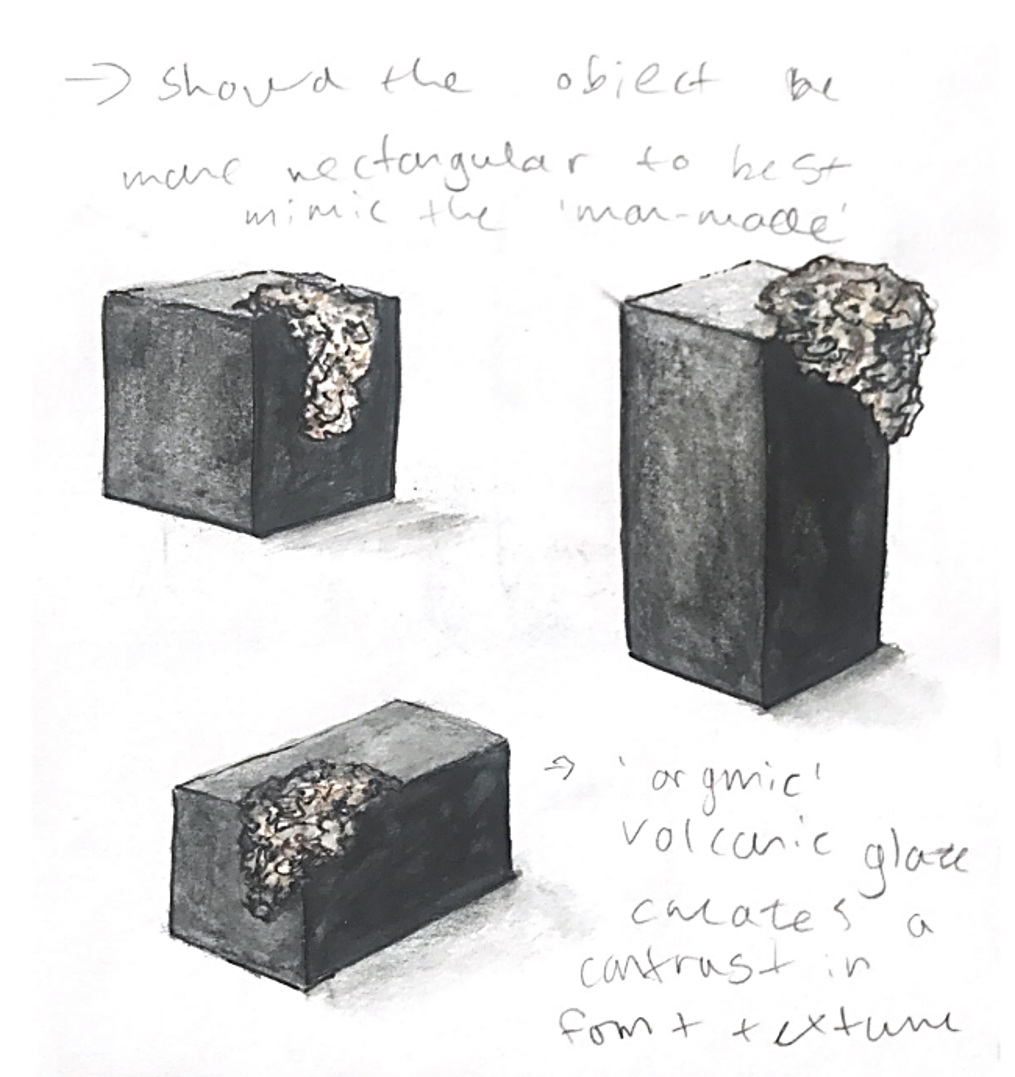 → Should the object be
more rectangular to best
mimic the 'man-made'
→ 'organic'
volcanic glaze
creates a
contrast in
form + texture